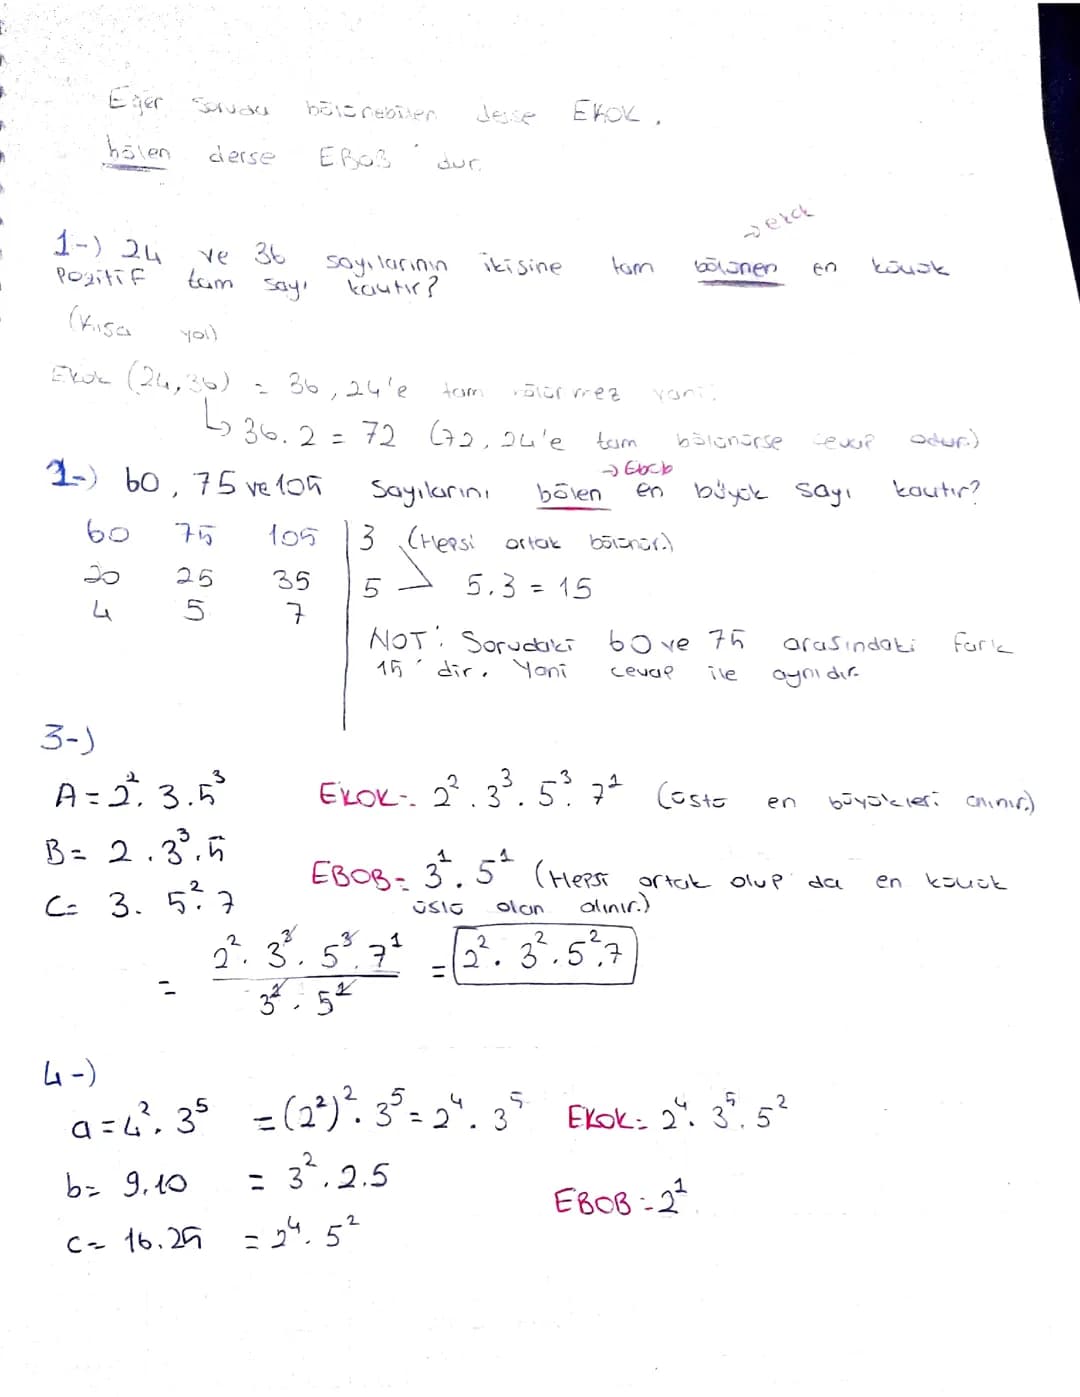 Eğer Soruda bölünebilen derse EKOK.
bölen derse EBOB' dur.
→ ekok
1-) 24 ve 36 sayılarının ikisine tam bölünen en küçük
Pozitif tam sayı kaçtır?
(Kısa yol)
Ekok (24,36) = 36, 24'e tam bölünmez yani:
↳ 36.2 = 72 (72, 24'e tam bölünürse cevap odur.)
→ Ebob
2-) 60, 75 ve 105 sayılarını bölen en büyük sayı kaçtır?
60 75 105 | 3 (Hepsi ortak bölünür.)
20 25 35 | 5 > 5.3 = 15
4 5 7
NOT: Sorudaki 60 ve 75 arasındaki fark
15' dir. Yani cevap ile aynıdır.
3-)
A = 2². 3.5³ EKOK = 2² . 3³ . 5³ . 7¹ (üstü en büyükleri alınır.)
B = 2 . 3³ . 5
EBOB = 3¹ . 5¹ (Hepsi ortak olup da en küçük
C = 3. 5² . 7 üslü olan alınır.)
= 2² . 3³ . 5³ . 7¹ / 3¹ . 5¹ = 2² . 3² . 5² . 7
4-)
a = 4² . 3⁵ = (2²)² . 3⁵ = 2⁴ . 3⁵ EKOK = 2⁴ . 3⁵ . 5²
b = 9.10 = 3² . 2.5
EBOB = 2¹
c = 16.25 = 2⁴ . 5²